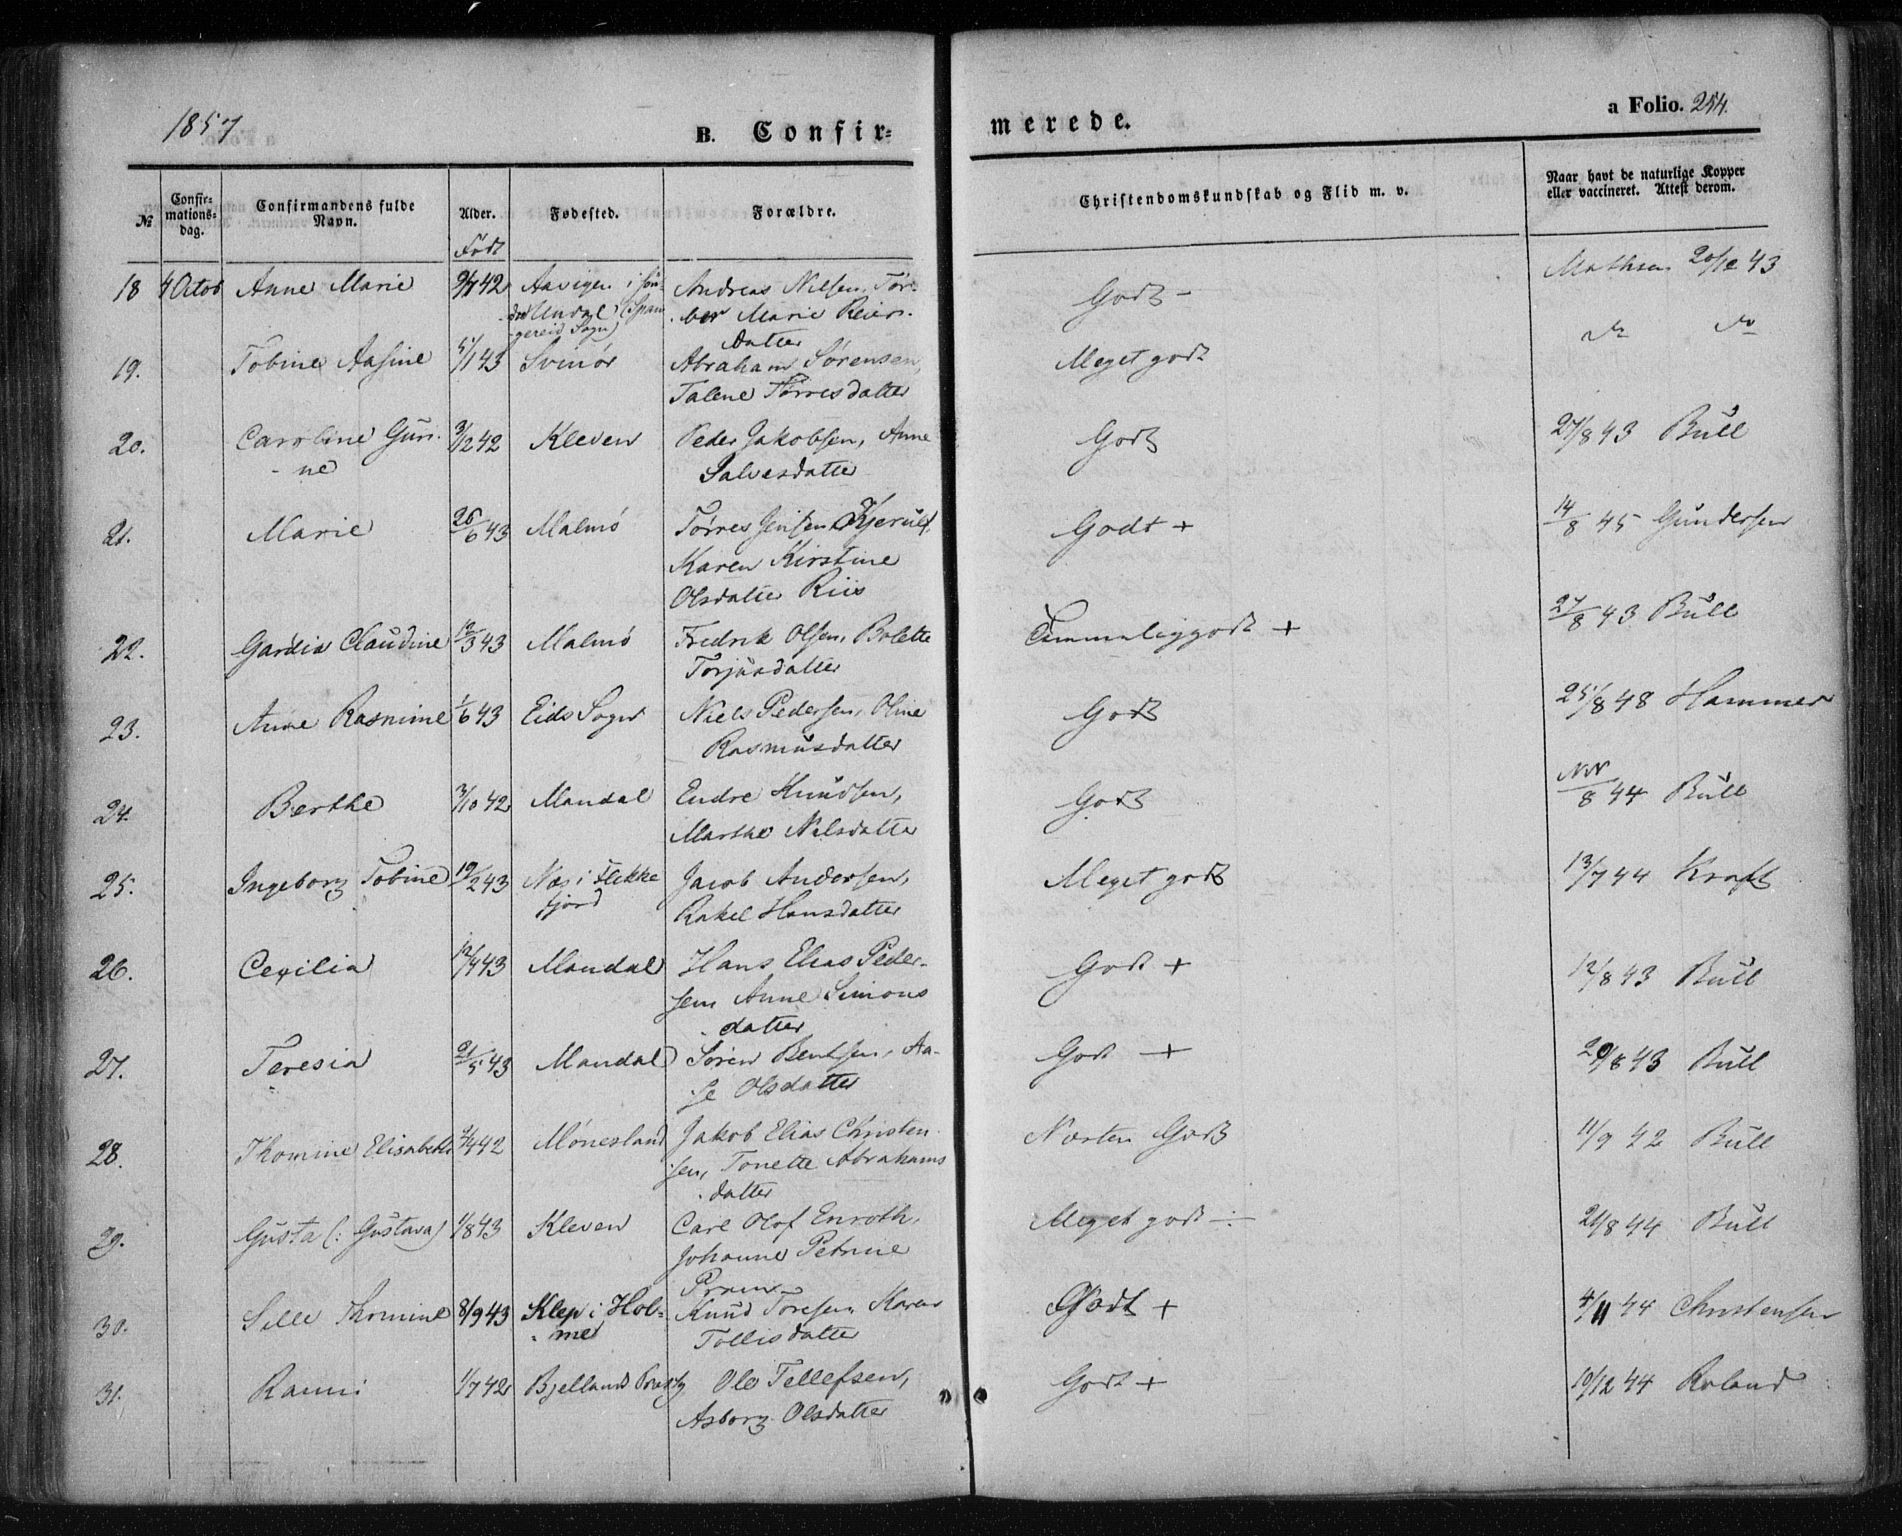 1857
B. Confir=
merede.
a Folio. 254.
№
Confir=
mations=
dag.
Confirmandens fulde
Navn.
Alder.
Født
Fødested.
Forældre.
Christendomskundskab og Flid m. v.
Naar havt de naturlige Kopper
eller vaccineret. Attest derom.
18 4 Octob Anne Marie 9/7 42 Aavigen i Søn- Andreas Nilsen, Tor- Godt - Mathsen 20/12 43
dre Undal (Span- bor Marie Reiers-
gereid Sogn) datter
19. Tobine Aasine 5/1 43 Svinør Abraham Sørensen, Meget godt do do
Talene Tørresdatter
20. Caroline Guri- 3/12 42 Kleven Peder Jakobsen, Anne Godt 27/8 43 Bull
- ne Salvesdatter
21. Marie 26/6 43 Malmø Tørres Jensen Kjerulf, Godt + 14/8 45 Gundersen
Karen Kirstine
Olsdatter Riis
22. Gardia Claudine 12/3 43 Malmø Fredrik Olsen, Bolette Temmeliggodt + 27/8 43 Bull
Torjusdatter
23. Anne Rasmine 1/6 43 Eids Sogn Niels Pedersen, Oline Godt 25/8 48 Hammer
Rasmusdatter
24. Berthe 3/10 42 Mandal Endre Knudsen, Godt NN/8 44 Bull
Marthe Nilsdatter
25. Ingeborg Tobine 19/2 43 Næs i Flekke Jacob Andersen, Meget godt 13/7 44 Kraft
fjord Rakel Hansdatter
26. Cecilia 12/4 43 Mandal Hans Elias Peder- Godt + 12/8 43 Bull
sen Anne Simons
datter
27. Teresia 21/5 43 Mandal Sören Bentsen, Aa- Godt + 29/8 43 Bull
se Olsdatter
28. Thomine Elisabeth 4/4 42 Mønesland Jakob Elias Christen- Næsten Godt 11/9 42 Bull
sen, Tonette Abrahams
datter
29. Gusta (: Gustava) 1/8 43 Kleven Carl Olof Enroth, Meget godt ÷ 21/8 44 Bull
Johanne Petrine
Pram
30. Sille Thomine 8/9 43 Klep i Hol- Knud Toresen Karen Godt + 4/11 44 Christensen
- me Tollisdatter
31. Ranni 1/7 42 Bjellands Præstg Ole Tellefsen, Godt + 10/12 44 Roland
Asborg Olsdatter